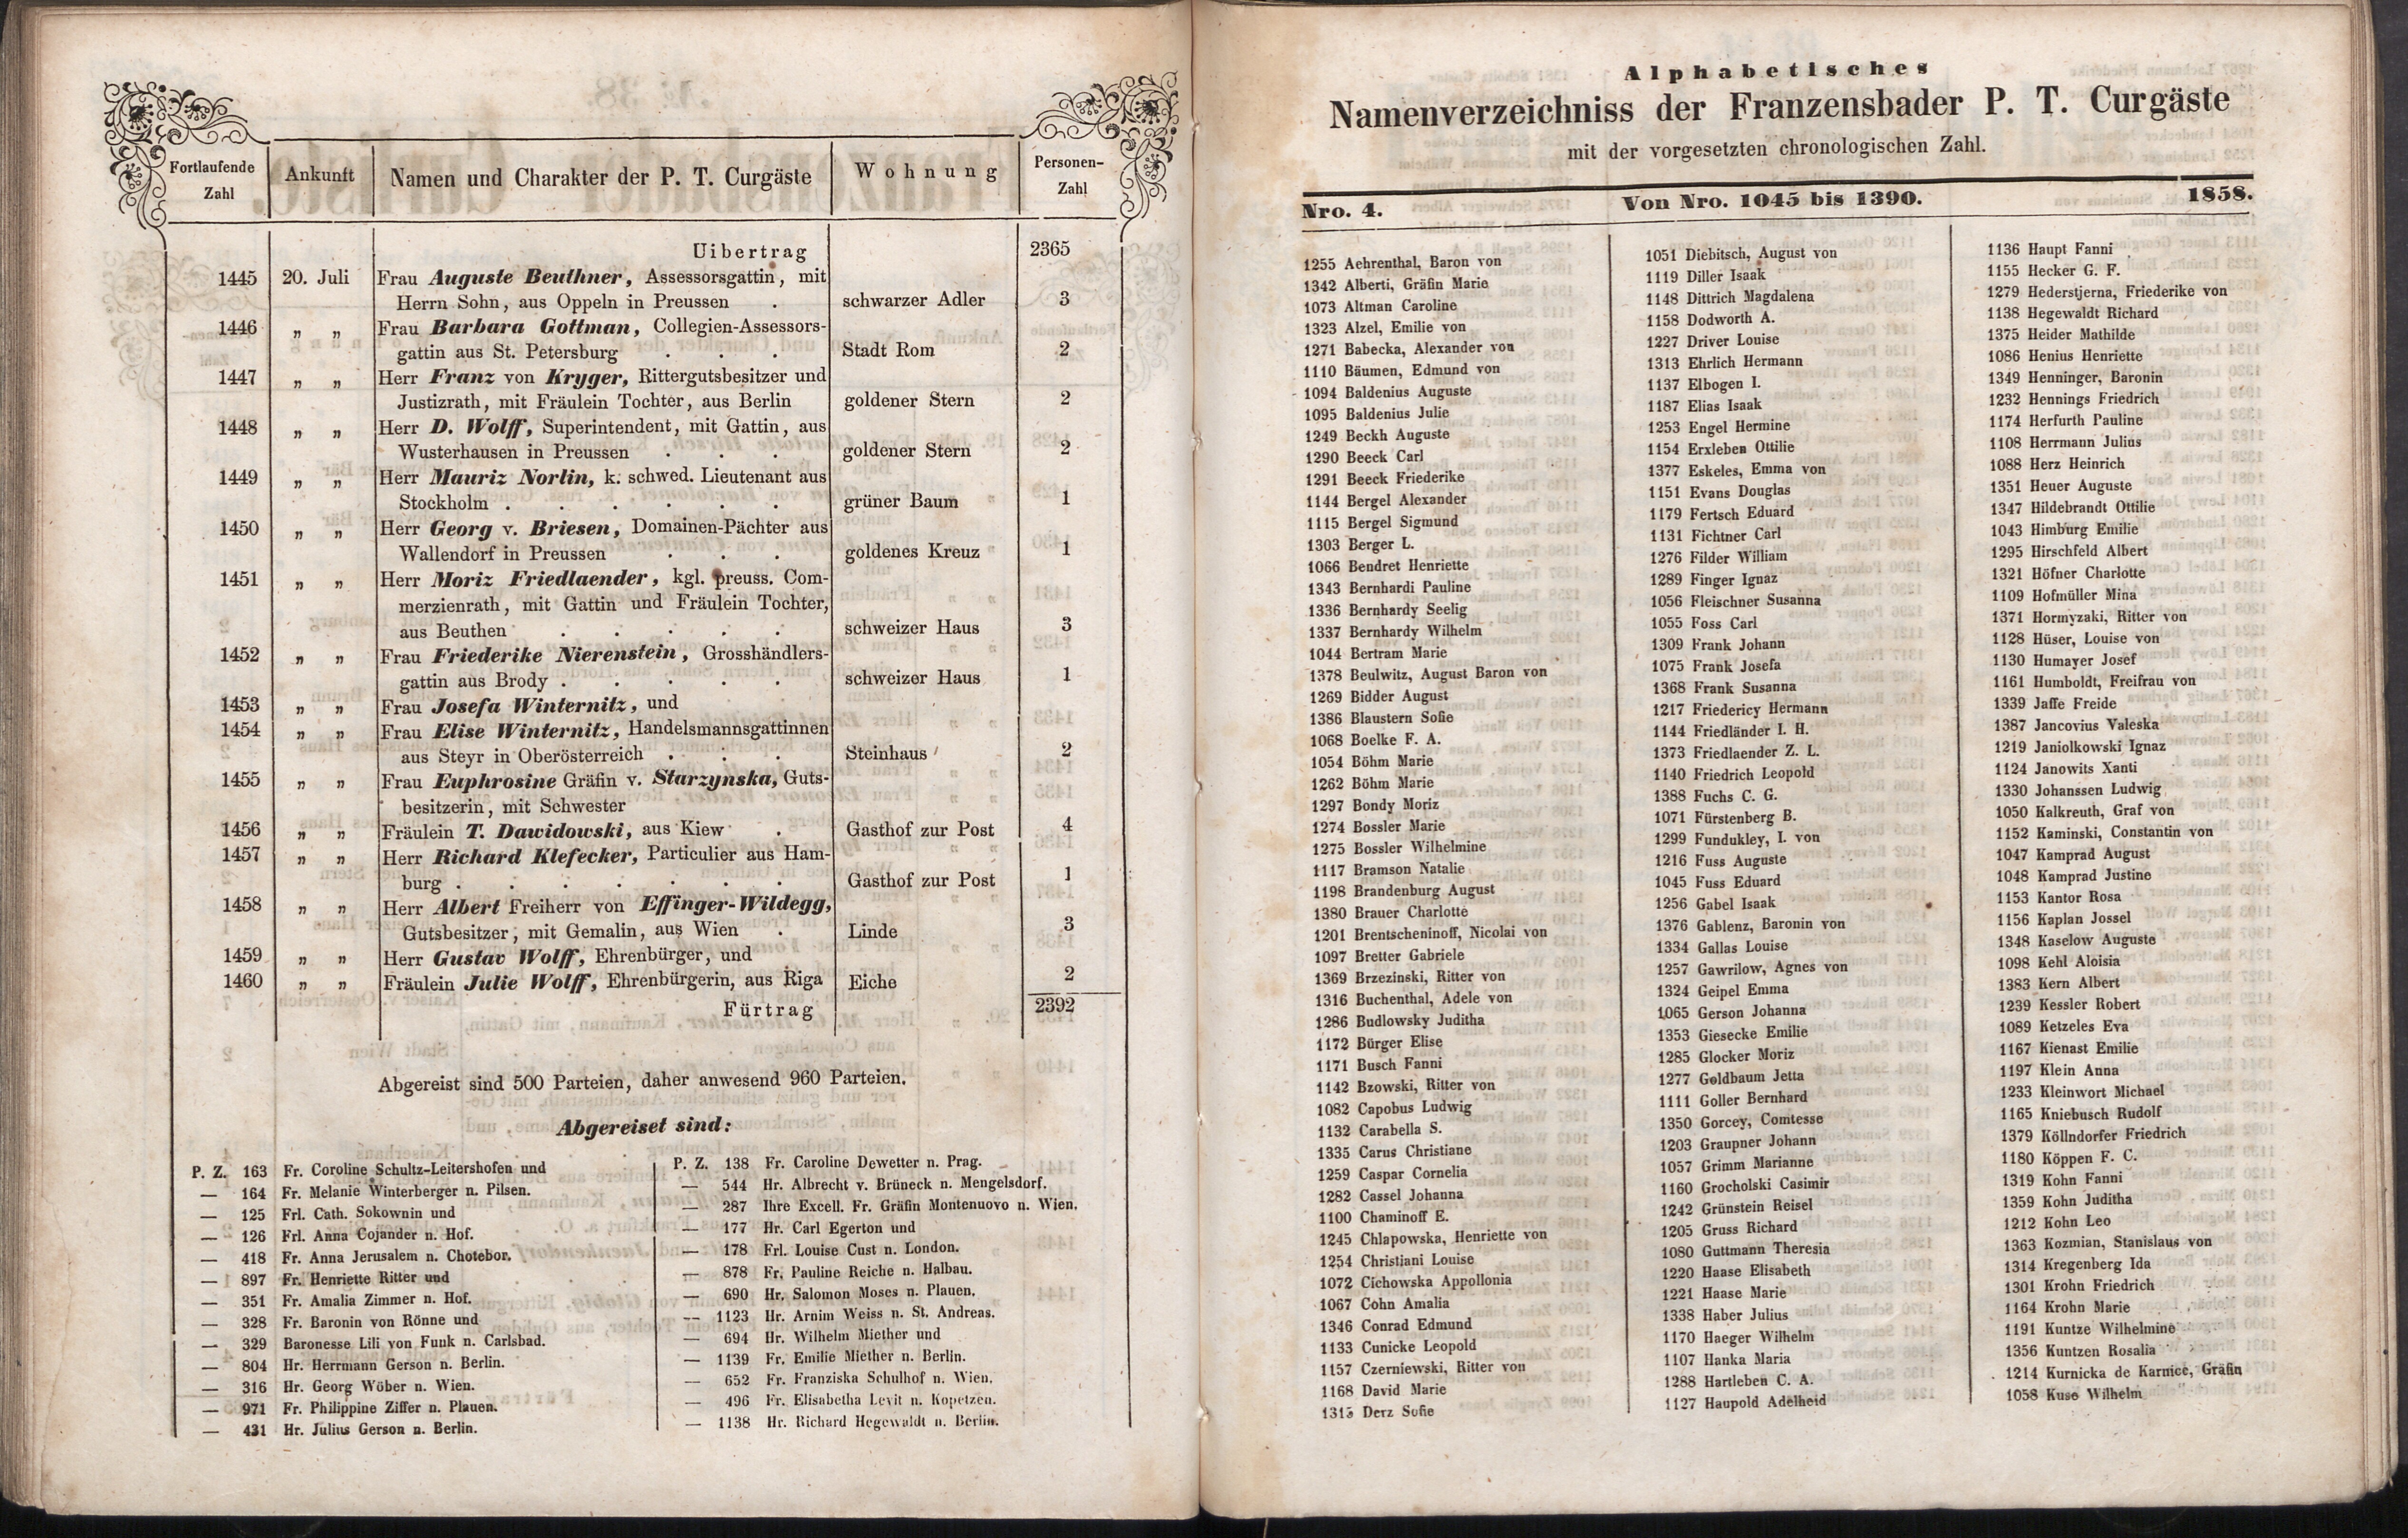 Fortlaufende Zahl | Ankunft | Namen und Charakter der P. T. Curgäste | Wohnung | Personen-Zahl
Uibertrag 2365
1445 20. Juli Frau Auguste Beuthner, Assessorsgattin, mit
Herrn Sohn, aus Oppeln in Preussen . schwarzer Adler 3
1446 „ „ Frau Barbara Gottman, Collegien-Assessors-
gattin aus St. Petersburg . . . Stadt Rom 2
1447 „ „ Herr Franz von Kryger, Rittergutsbesitzer und
Justizrath, mit Fräulein Tochter, aus Berlin goldener Stern 2
1448 „ „ Herr D. Wolff, Superintendent, mit Gattin, aus
Wusterhausen in Preussen . . . goldener Stern 2
1449 „ „ Herr Mauriz Norlin, k. schwed. Lieutenant aus
Stockholm . . . . . . grüner Baum 1
1450 „ „ Herr Georg v. Briesen, Domainen-Pächter aus
Wallendorf in Preussen . . . goldenes Kreuz 1
1451 „ „ Herr Moriz Friedlaender, kgl. preuss. Com-
merzienrath, mit Gattin und Fräulein Tochter,
aus Beuthen . . . . . schweizer Haus 3
1452 „ „ Frau Friederike Nierenstein, Grosshändlers-
gattin aus Brody . . . . . schweizer Haus 1
1453 „ „ Frau Josefa Winternitz, und
1454 „ „ Frau Elise Winternitz, Handelsmannsgattinnen
aus Steyr in Oberösterreich . . . Steinhaus 2
1455 „ „ Frau Euphrosine Gräfin v. Starzynska, Guts-
besitzerin, mit Schwester
1456 „ „ Fräulein T. Dawidowski, aus Kiew . Gasthof zur Post 4
1457 „ „ Herr Richard Klefecker, Particulier aus Ham-
burg . . . . . . . Gasthof zur Post 1
1458 „ „ Herr Albert Freiherr von Effinger-Wildegg,
Gutsbesitzer, mit Gemalin, aus Wien . Linde 3
1459 „ „ Herr Gustav Wolff, Ehrenbürger, und
1460 „ „ Fräulein Julie Wolff, Ehrenbürgerin, aus Riga Eiche 2
Fürtrag 2392
Abgereist sind 500 Parteien, daher anwesend 960 Parteien.
Abgereiset sind:
P. Z. 163 Fr. Coroline Schultz-Leitershofen und
— 164 Fr. Melanie Winterberger n. Pilsen.
— 125 Frl. Cath. Sokownin und
— 126 Frl. Anna Cojander n. Hof.
— 418 Fr. Anna Jerusalem n. Chotebor.
— 897 Fr. Henriette Ritter und
— 351 Fr. Amalia Zimmer n. Hof.
— 328 Fr. Baronin von Rönne und
— 329 Baronesse Lili von Funk n. Carlsbad.
— 804 Hr. Herrmann Gerson n. Berlin.
— 316 Hr. Georg Wöber n. Wien.
— 971 Fr. Philippine Ziffer n. Plauen.
— 431 Hr. Julius Gerson n. Berlin.
P. Z. 138 Fr. Caroline Dewetter n. Prag.
— 544 Hr. Albrecht v. Brüneck n. Mengelsdorf.
— 287 Ihre Excell. Fr. Gräfin Montenuovo n. Wien.
— 177 Hr. Carl Egerton und
— 178 Frl. Louise Cust n. London.
— 878 Fr. Pauline Reiche n. Halbau.
— 690 Hr. Salomon Moses n. Plauen.
— 1123 Hr. Arnim Weiss n. St. Andreas.
— 694 Hr. Wilhelm Miether und
— 1139 Fr. Emilie Miether n. Berlin.
— 652 Fr. Franziska Schulhof n. Wien.
— 496 Fr. Elisabetha Levit n. Kopetzen.
— 1138 Hr. Richard Hegewaldt n. Berlin.
Alphabetisches
Namenverzeichniss der Franzensbader P. T. Curgäste
mit der vorgesetzten chronologischen Zahl.
Nro. 4. Von Nro. 1045 bis 1390. 1858.
1255 Aehrenthal, Baron von
1342 Alberti, Gräfin Marie
1073 Altman Caroline
1323 Alzel, Emilie von
1271 Babecka, Alexander von
1110 Bäumen, Edmund von
1094 Baldenius Auguste
1095 Baldenius Julie
1249 Beckh Auguste
1290 Beeck Carl
1291 Beeck Friederike
1144 Bergel Alexander
1115 Bergel Sigmund
1303 Berger L.
1066 Bendret Henriette
1343 Bernhardi Pauline
1336 Bernhardy Seelig
1337 Bernhardy Wilhelm
1044 Bertram Marie
1378 Beulwitz, August Baron von
1269 Bidder August
1386 Blaustern Sofie
1068 Boelke F. A.
1054 Böhm Marie
1262 Böhm Marie
1297 Bondy Moriz
1274 Bossler Marie
1275 Bossler Wilhelmine
1117 Bramson Natalie
1198 Brandenburg August
1380 Brauer Charlotte
1201 Brentscheninoff, Nicolai von
1097 Bretter Gabriele
1369 Brzezinski, Ritter von
1316 Buchenthal, Adele von
1286 Budlowsky Juditha
1172 Bürger Elise
1171 Busch Fanni
1142 Bzowski, Ritter von
1082 Capobus Ludwig
1132 Carabella S.
1335 Carus Christiane
1259 Caspar Cornelia
1282 Cassel Johanna
1100 Chaminoff E.
1245 Chlapowska, Henriette von
1254 Christiani Louise
1072 Cichowska Appollonia
1067 Cohn Amalia
1346 Conrad Edmund
1133 Cunicke Leopold
1157 Czerniewski, Ritter von
1168 David Marie
1315 Derz Sofie
1051 Diebitsch, August von
1119 Diller Isaak
1148 Dittrich Magdalena
1158 Dodworth A.
1227 Driver Louise
1313 Ehrlich Hermann
1137 Elbogen I.
1187 Elias Isaak
1253 Engel Hermine
1154 Erxleben Ottilie
1377 Eskeles, Emma von
1151 Evans Douglas
1179 Fertsch Eduard
1131 Fichtner Carl
1276 Filder William
1289 Finger Ignaz
1056 Fleischner Susanna
1055 Foss Carl
1309 Frank Johann
1075 Frank Josefa
1368 Frank Susanna
1217 Friedericy Hermann
1144 Friedländer I. H.
1373 Friedlaender Z. L.
1140 Friedrich Leopold
1388 Fuchs C. G.
1071 Fürstenberg B.
1299 Fundukley, I. von
1216 Fuss Auguste
1045 Fuss Eduard
1256 Gabel Isaak
1376 Gablenz, Baronin von
1334 Gallas Louise
1257 Gawrilow, Agnes von
1324 Geipel Emma
1065 Gerson Johanna
1353 Giesecke Emilie
1285 Glocker Moriz
1277 Goldbaum Jetta
1111 Goller Bernhard
1350 Gorcey, Comtesse
1203 Graupner Johann
1057 Grimm Marianne
1160 Grocholski Casimir
1242 Grünstein Reisel
1205 Gruss Richard
1080 Guttmann Theresia
1220 Haase Elisabeth
1221 Haase Marie
1338 Haber Julius
1170 Haeger Wilhelm
1107 Hanka Maria
1288 Hartleben C. A.
1127 Haupold Adelheid
1136 Haupt Fanni
1155 Hecker G. F.
1279 Hederstjerna, Friederike von
1138 Hegewaldt Richard
1375 Heider Mathilde
1086 Henius Henriette
1349 Henninger, Baronin
1232 Hennings Friedrich
1174 Herfurth Pauline
1108 Herrmann Julius
1088 Herz Heinrich
1351 Heuer Auguste
1347 Hildebrandt Ottilie
1043 Himburg Emilie
1295 Hirschfeld Albert
1321 Höfner Charlotte
1109 Hofmüller Mina
1371 Hormyzaki, Ritter von
1128 Hüser, Louise von
1130 Humayer Josef
1161 Humboldt, Freifrau von
1339 Jaffe Freide
1387 Jancovius Valeska
1219 Janiolkowski Ignaz
1124 Janowits Xanti
1330 Johanssen Ludwig
1050 Kalkreuth, Graf von
1152 Kaminski, Constantin von
1047 Kamprad August
1048 Kamprad Justine
1153 Kantor Rosa
1156 Kaplan Jossel
1348 Kaselow Auguste
1098 Kehl Aloisia
1383 Kern Albert
1239 Kessler Robert
1089 Ketzeles Eva
1167 Kienast Emilie
1197 Klein Anna
1233 Kleinwort Michael
1165 Kniebusch Rudolf
1379 Köllndorfer Friedrich
1180 Köppen F. C.
1319 Kohn Fanni
1359 Kohn Juditha
1212 Kohn Leo
1363 Kozmian, Stanislaus von
1314 Kregenberg Ida
1301 Krohn Friedrich
1164 Krohn Marie
1191 Kuntze Wilhelmine
1356 Kuntzen Rosalia
1214 Kurnicka de Karnice, Gräfin
1058 Kuso Wilhelm